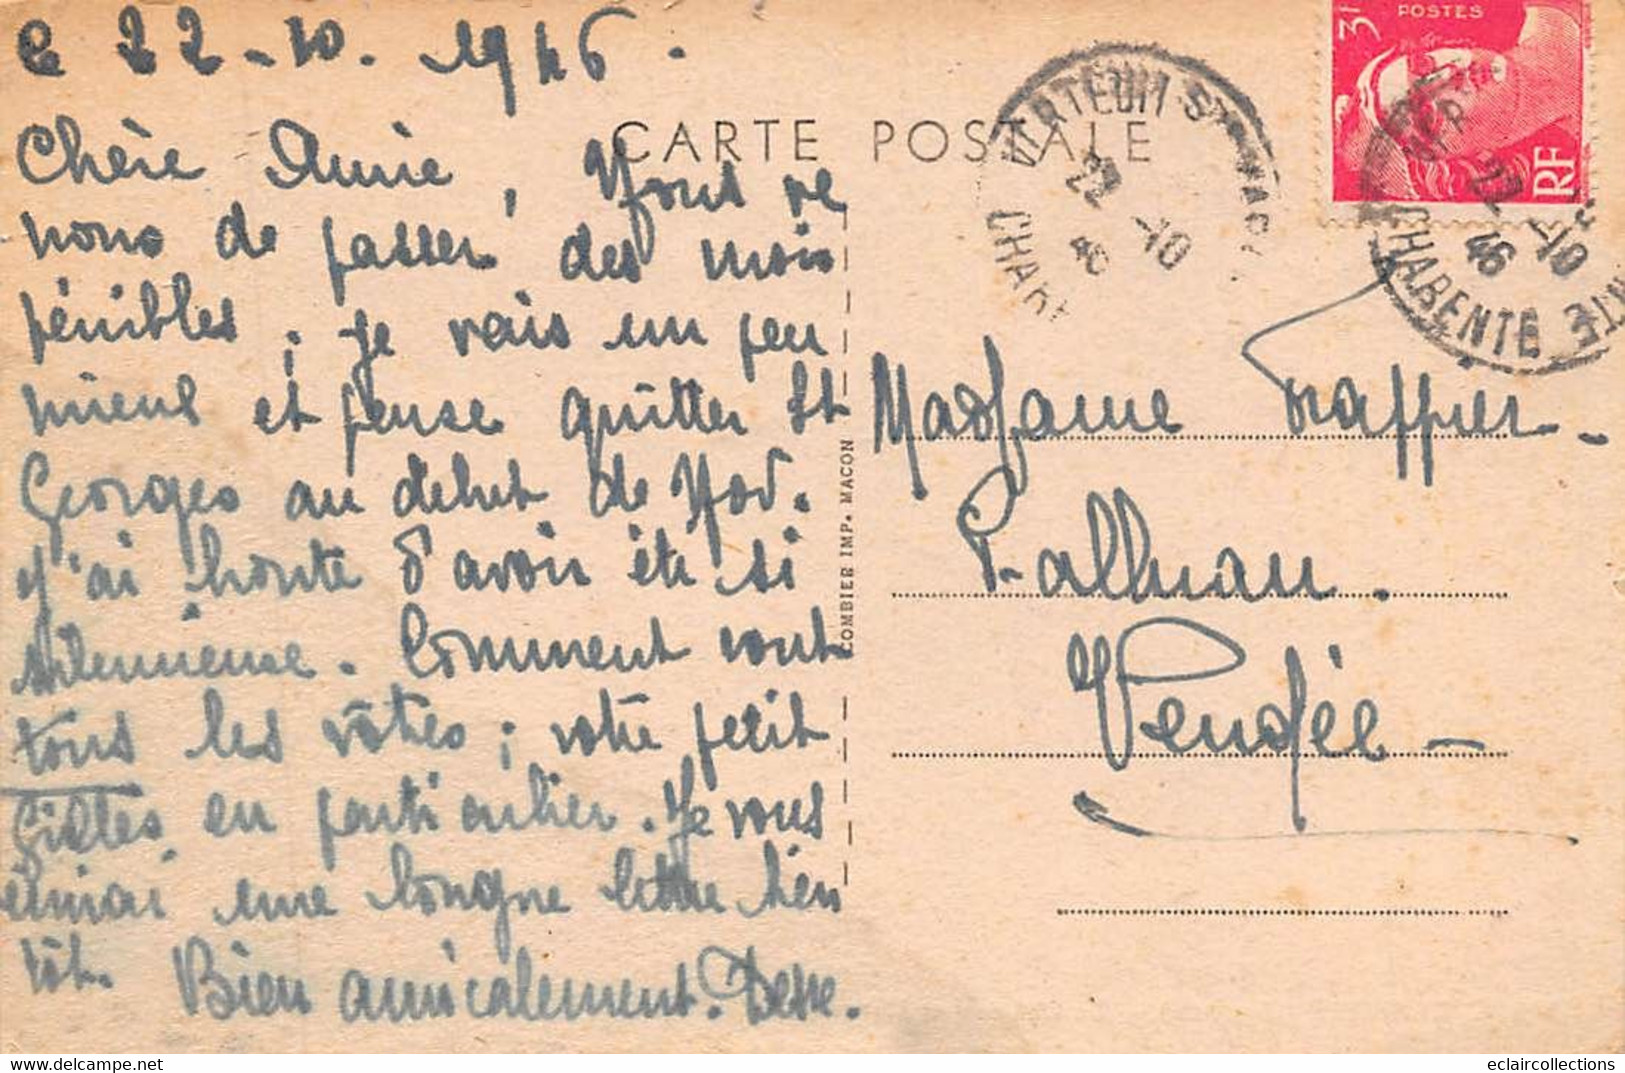 le 22-10. 1946.
Chère Amie, Nous ve
nons de passer des mois
pénibles ; je vais un peu
mieux et pense quitter St
Georges au debut de Nov.
J'ai honte d'avoir été si
silencieuse. Comment vont
tous les vôtres ; votre petit
Gilles en particulier. Je vous
écrirai une longue lettre bien
tôt. Bien amicalement.
CARTE POSTALE
COMBIER IMP. MACON
VERTEUIL S
22 -10
46
CHAR
3F POSTES
RF
22 -10
46
CHARENTE
Madame
Vendée -
eclaircollections